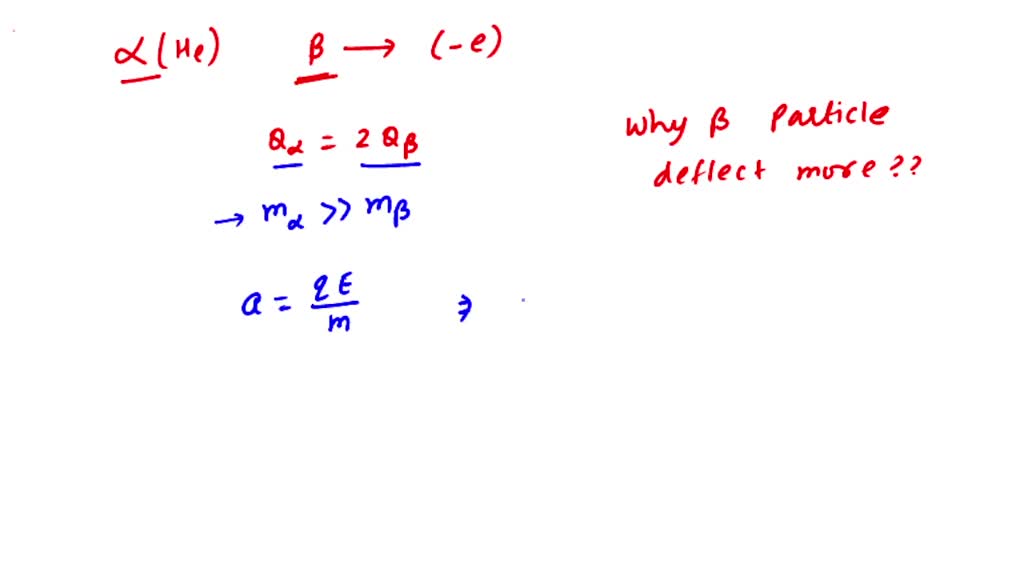 α(He) β → (-e)
Why β Particle
deflect more??
Qα = 2 Qβ
→ mα >> mβ
a = qE/m ⇒